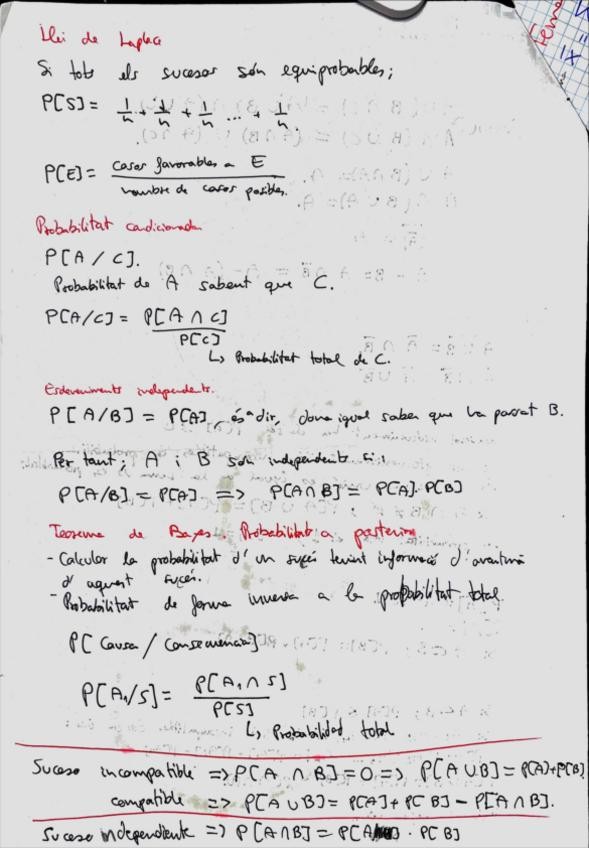 Llei de Laplace
Si tots els sucesos són equiprobables;
P[S] = 1/n + 1/n + 1/n ... + 1/n
P[E] = casos favorables a E / nombre de casos posibles.
Probabilitat condicionada
P[A / C].
Probabilitat de A sabent que C.
P[A/C] = P[A ∩ C] / P[C]
↳ Probabilitat total de C.
Esdeveniments independents.
P[A/B] = P[A], és a dir, dona igual saber que ha passat B.
Per tant; A i B són independents si:
P[A/B] = P[A] => P[A ∩ B] = P[A] · P[B]
Teorema de Bayes. Probabilitat a posteriori
- Calcular la probabilitat d'un sucés tenint informació d'
d'aquest sucés.
- Probabilitat de forma inversa a la probabilitat total
P[Causa / Consecuencia]
P[A₁/S] = P[A₁ ∩ S] / P[S]
↳ Probabilidad total.
Suceso incompatible => P[A ∩ B] = 0 => P[A ∪ B] = P[A] + P[B]
compatible => P[A ∪ B] = P[A] + P[B] - P[A ∩ B].
Suceso independiente => P[A ∩ B] = P[A] · P[B]
Tema